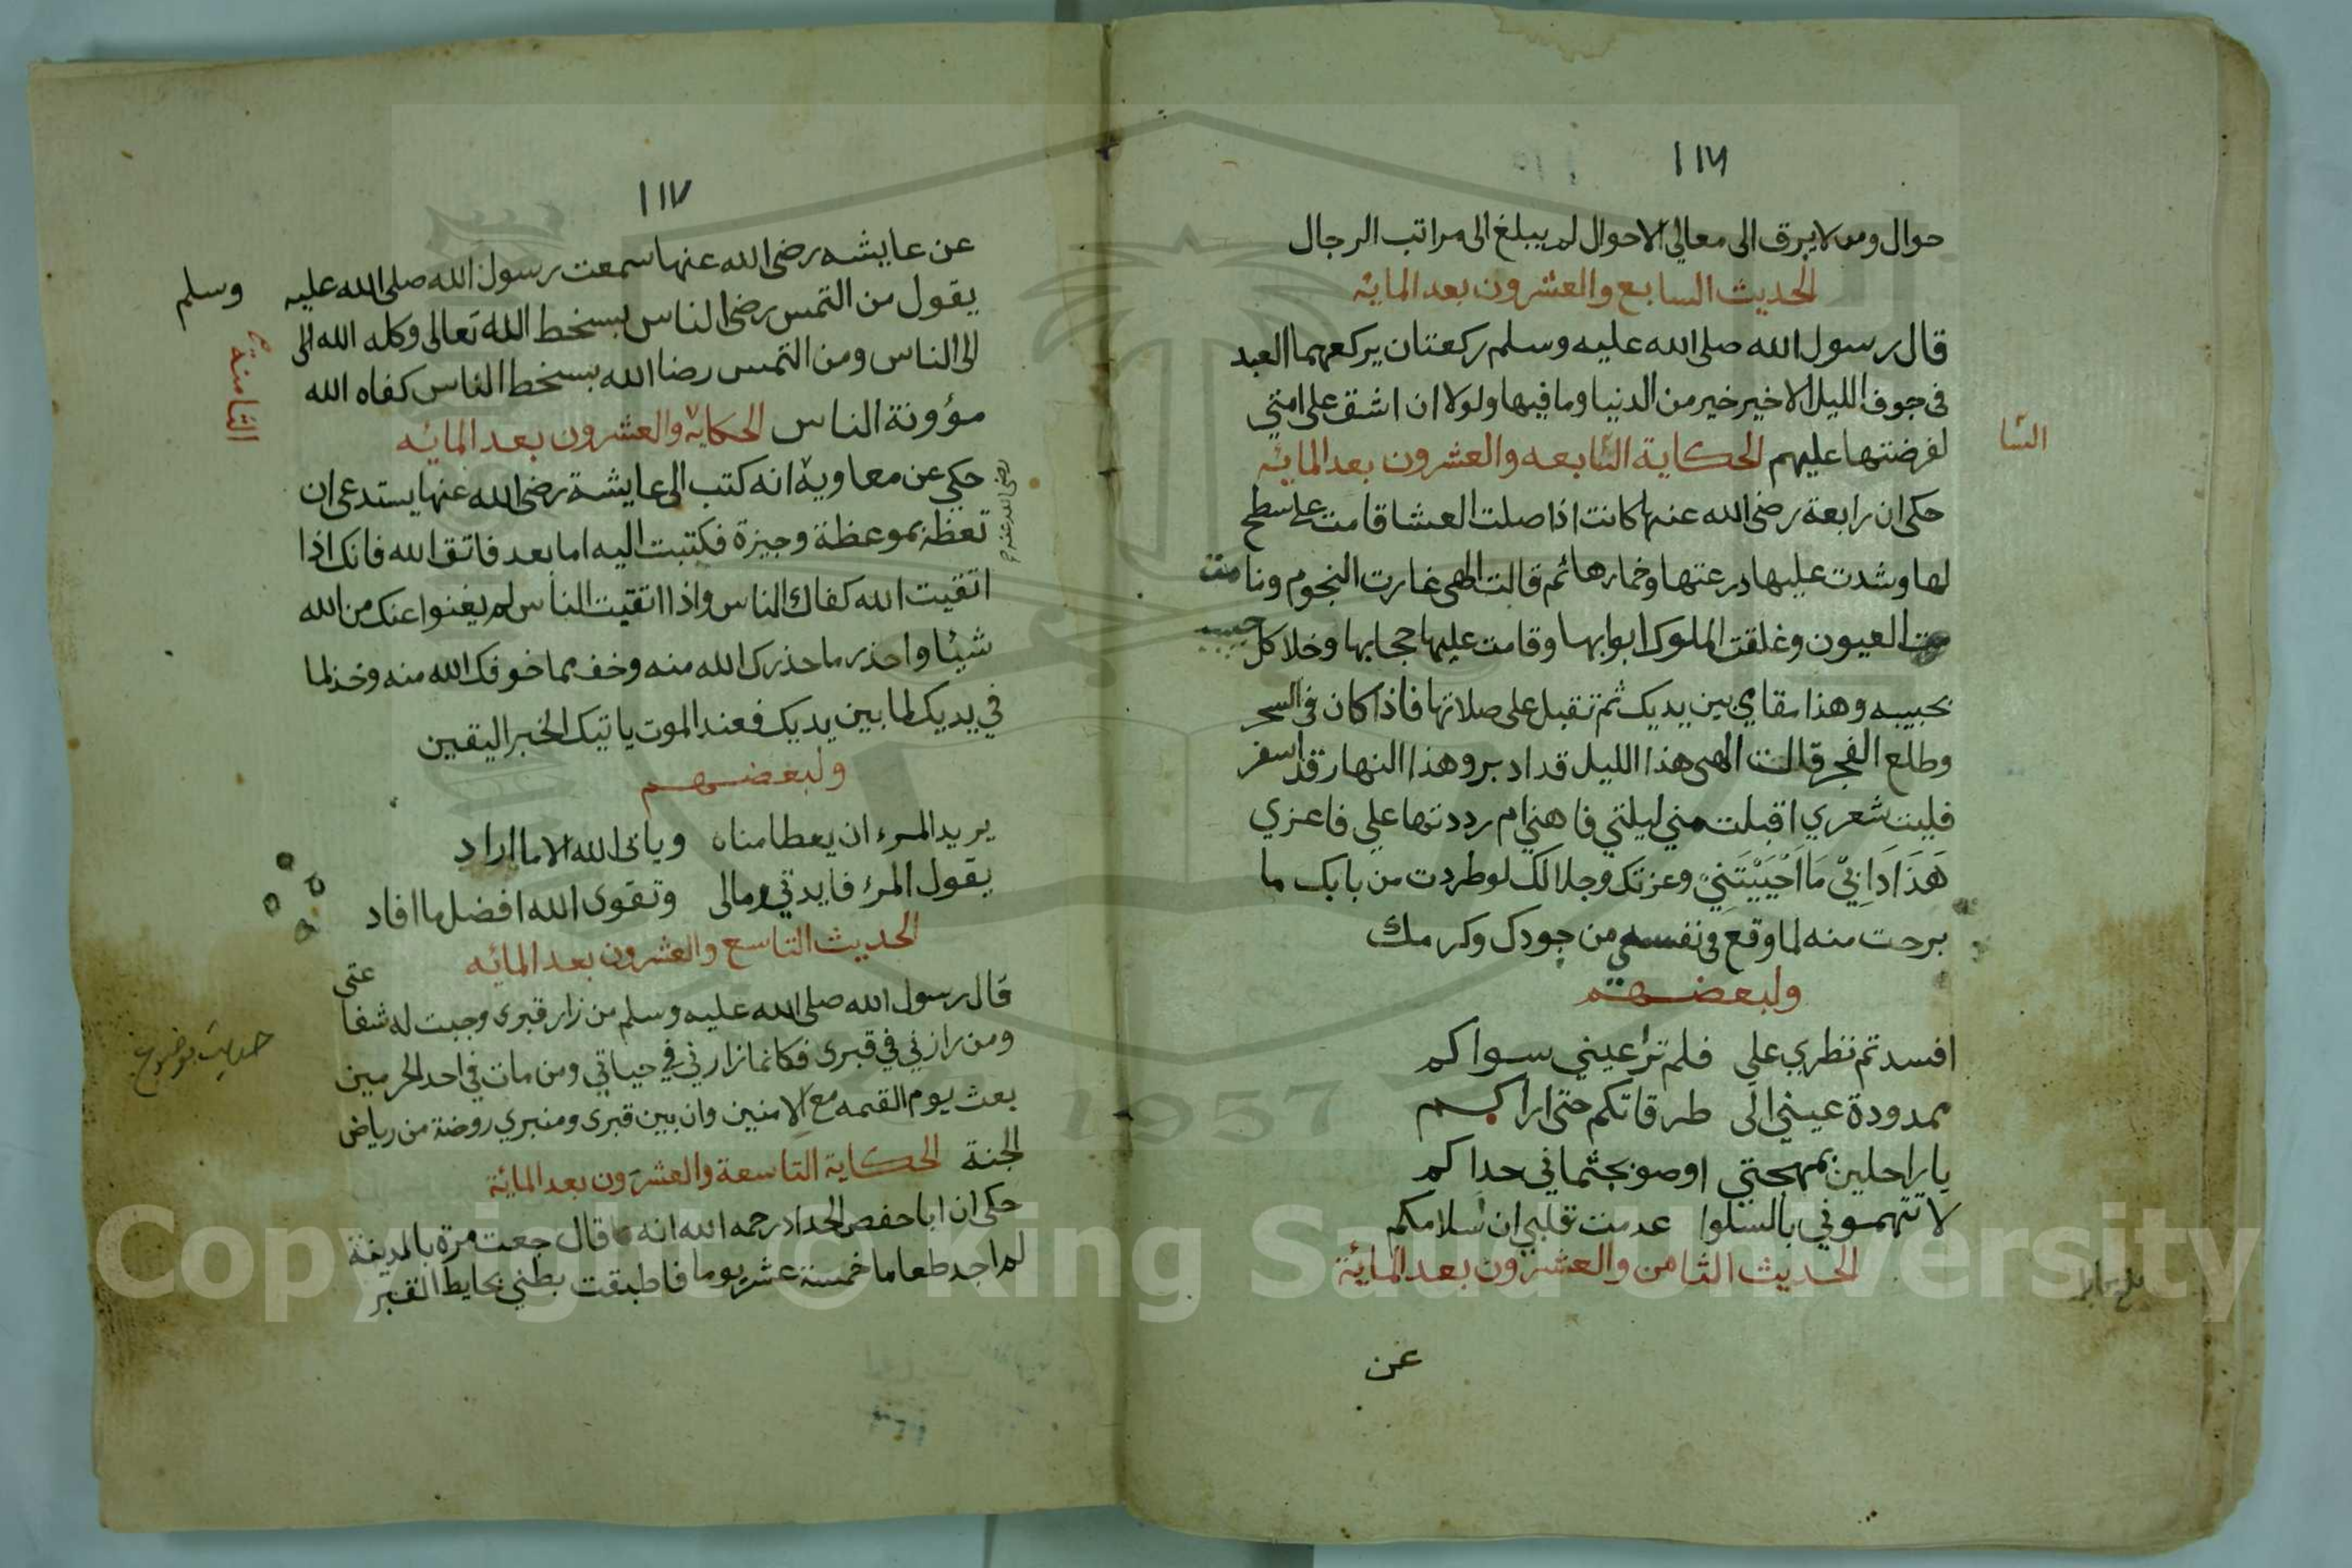 ١١٦
حوال ومن لا يرق الى معالي الاحوال لم يبلغ الى مراتب الرجال
الحديث السابع والعشرون بعد المائة
قال رسول الله صلى الله عليه وسلم ركعتان يركعهما العبد
فى جوف الليل الاخير خير من الدنيا وما فيها ولولا ان اشق على امتي
لفرضتها عليهم الحكاية السابعه والعشرون بعد المائه
السا
حكى ان رابعة رضى الله عنها كانت اذا صلت العشا قامت على سطح
لها وشدت عليها درعتها وخمارها ثم قالت الهى غارت النجوم ونامت
مت العيون وغلقت الملوك ابوابها وقامت عليها حجابها وخلا كل حبيب
بحبيبه وهذا مقاي بين يديك ثم تقبل على صلاتها فاذا كان فى السحر
وطلع الفجر قالت الهى هذا الليل قد ادبر وهذا النهار قد اسفر
فليت شعري اقبلت مني ليلتي فاهنى ام رددتها علي فاعزي
هَذَا دَابِيْ مَا اَحْيَيْتَنِيْ وعزتك وجلالك لو طردت من بابك ما
برحت منه لما وقع فى نفسي من جودك وكرمك
ولبعضهم
افسدتم نظري علي فلم ترا عيني سواكم
ممدودة عيني الى طرقاتكم حتى اراكم
يا راحلين بمهجتي اوصو بجثماني حداكم
لا تتهموني بالسلوا عدمت قلبي ان سلامكم
الحديث الثامن والعشرون بعد المائة
عن
١١٧
عن عايشه رضى الله عنها سمعت رسول الله صلى الله عليه وسلم
يقول من التمس رضى الناس بسخط الله تعالى وكله الله الى
الى الناس ومن التمس رضا الله بسخط الناس كفاه الله
الثامنة
مؤونة الناس الحكاية والعشرون بعد المائه
حكي عن معاوية انه كتب الى عايشة رضى الله عنها يستدعى ان
رضى الله عنه
تعظه بموعظة وجيزة فكتبت اليه اما بعد فاتق الله فانك اذا
اتقيت الله كفاك الناس واذا اتقيت الناس لم يغنوا عنك من الله
شيئا واحذر ما حذرك الله منه وخف مما خوفك الله منه وخذ لما
في يديك لما بين يديك فعند الموت ياتيك الخبر اليقين
ولبعضهم
يريد المرء ان يعطا مناه وياتى الله الا ما اراد
يقول المرء فايدتي ومالى وتقوى الله افضل ما افاد
الحديث التاسع والعشرون بعد المائه
قال رسول الله صلى الله عليه وسلم من زار قبرى وجبت له شفا عتى
ومن رازني في قبرى فكانما زارني في حياتي ومن مات في احد الحرمين
حديث موضوع
بعث يوم القمه مع الامنين وان بين قبرى ومنبري روضة من رياض
الجنة الحكاية التاسعة والعشرون بعد المائة
حكى ان ابا حفص الحداد رحمه الله انه قال جعت مرة بالمدينة
لم اجد طعاما خمسة عشر يوما فاطبقت بطني بحايط القبر
Copyright © King Saud University
1957